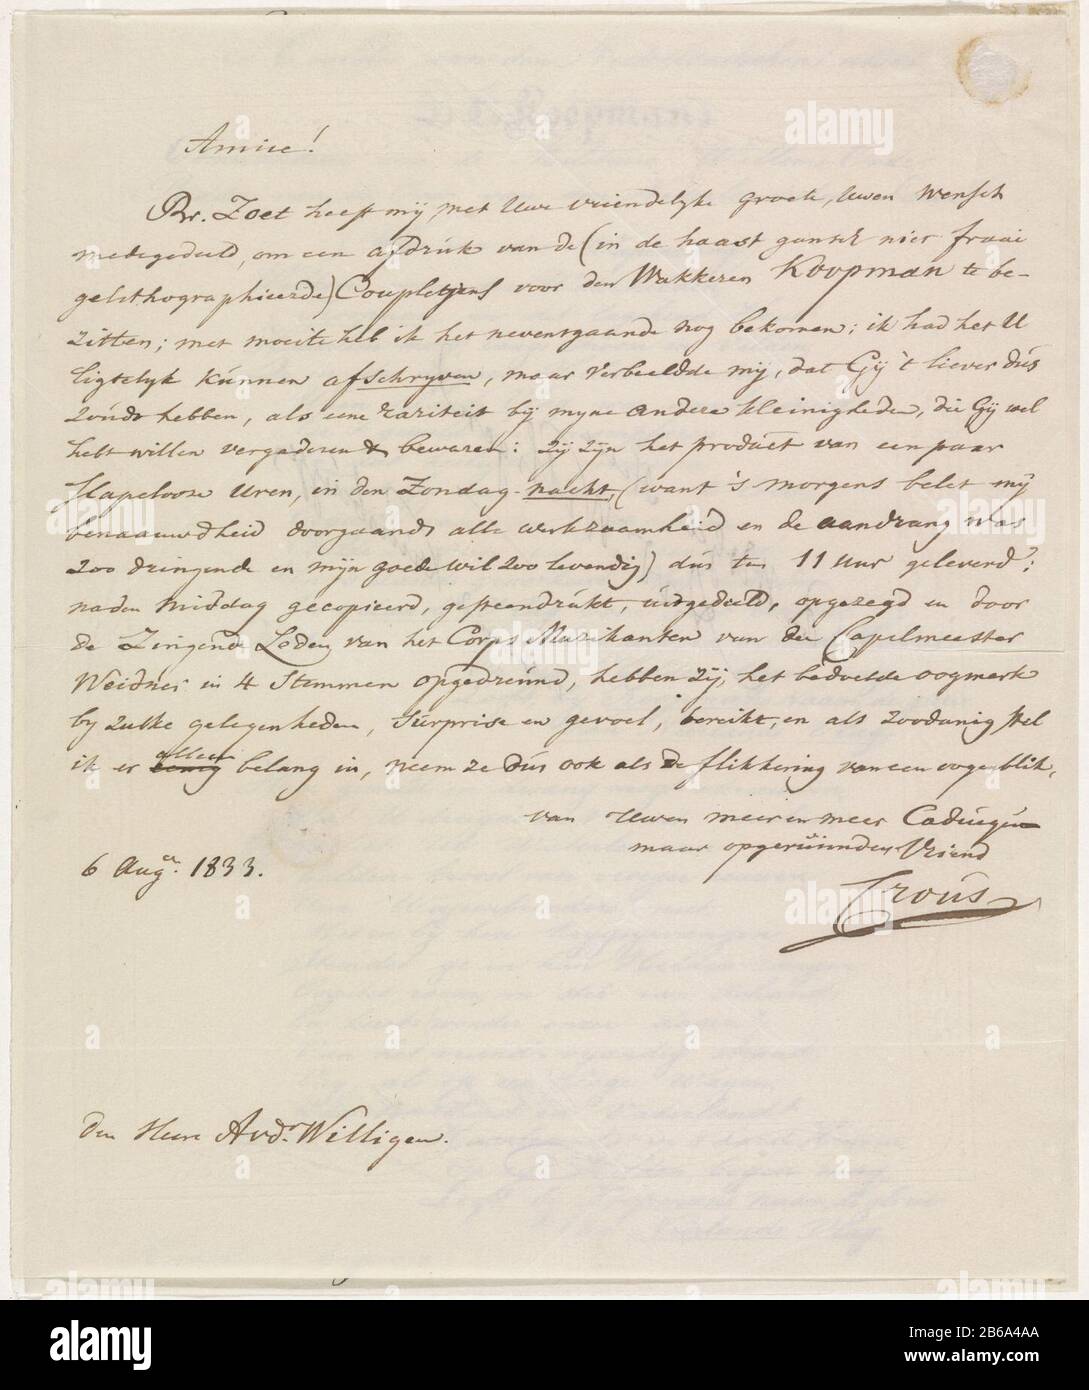 Amice!
Br. Zoet heeft mij met Uwe vriendelyke groete, Uwen wensch
medegedeeld, om een afdrúk van de (in de haast gansch niet fraai
gelithographieerde) Coupletjens voor den Wakkeren Koopman te be-
zitten; met moeite heb ik het nevensgaande nog bekomen; ik had het U
ligtelyk kúnnen afschryven, maar verbeeldde mij, dat Gij 't liever dús
zoúdt hebben, als eene rariteit bij myne andere kleinigheden, die Gij wel
hebt willen vergaderen & bewaren: zij zijn het prodúct van een paar
slapeloose Uren, in den Zondag-nacht, (want 's morgens belet mij
benaauwdheid doorgaands alle werkzaamheid en de aandrang was
zoo dringende en mijn goede wil zoo levendig) dús ten 11 Uur geleverd;
na den middag gecopieerd, gesteendrúkt, úitgedeeld, opgezegd en door
de Zingende Leden van het Corps Muzikanten van den Capelmeester
Weidner in 4 Stemmen opgedreúnd, hebben zij, het bedoelde oogmerk
by zulke gelegenheden, súrprise en gevoel, bereikt, en als zoodanig stel
ik er eenig alleen belang in, neem ze dús ook als de flikkering van een oogenblik,
van Uwen meer en meer Cadúcqúen
maar opgerúimden Vriend
6 Augs. 1833.
Croús
den Heere A vdr Willigen.
alamy
Image ID: 2B6A4AA
www.alamy.com